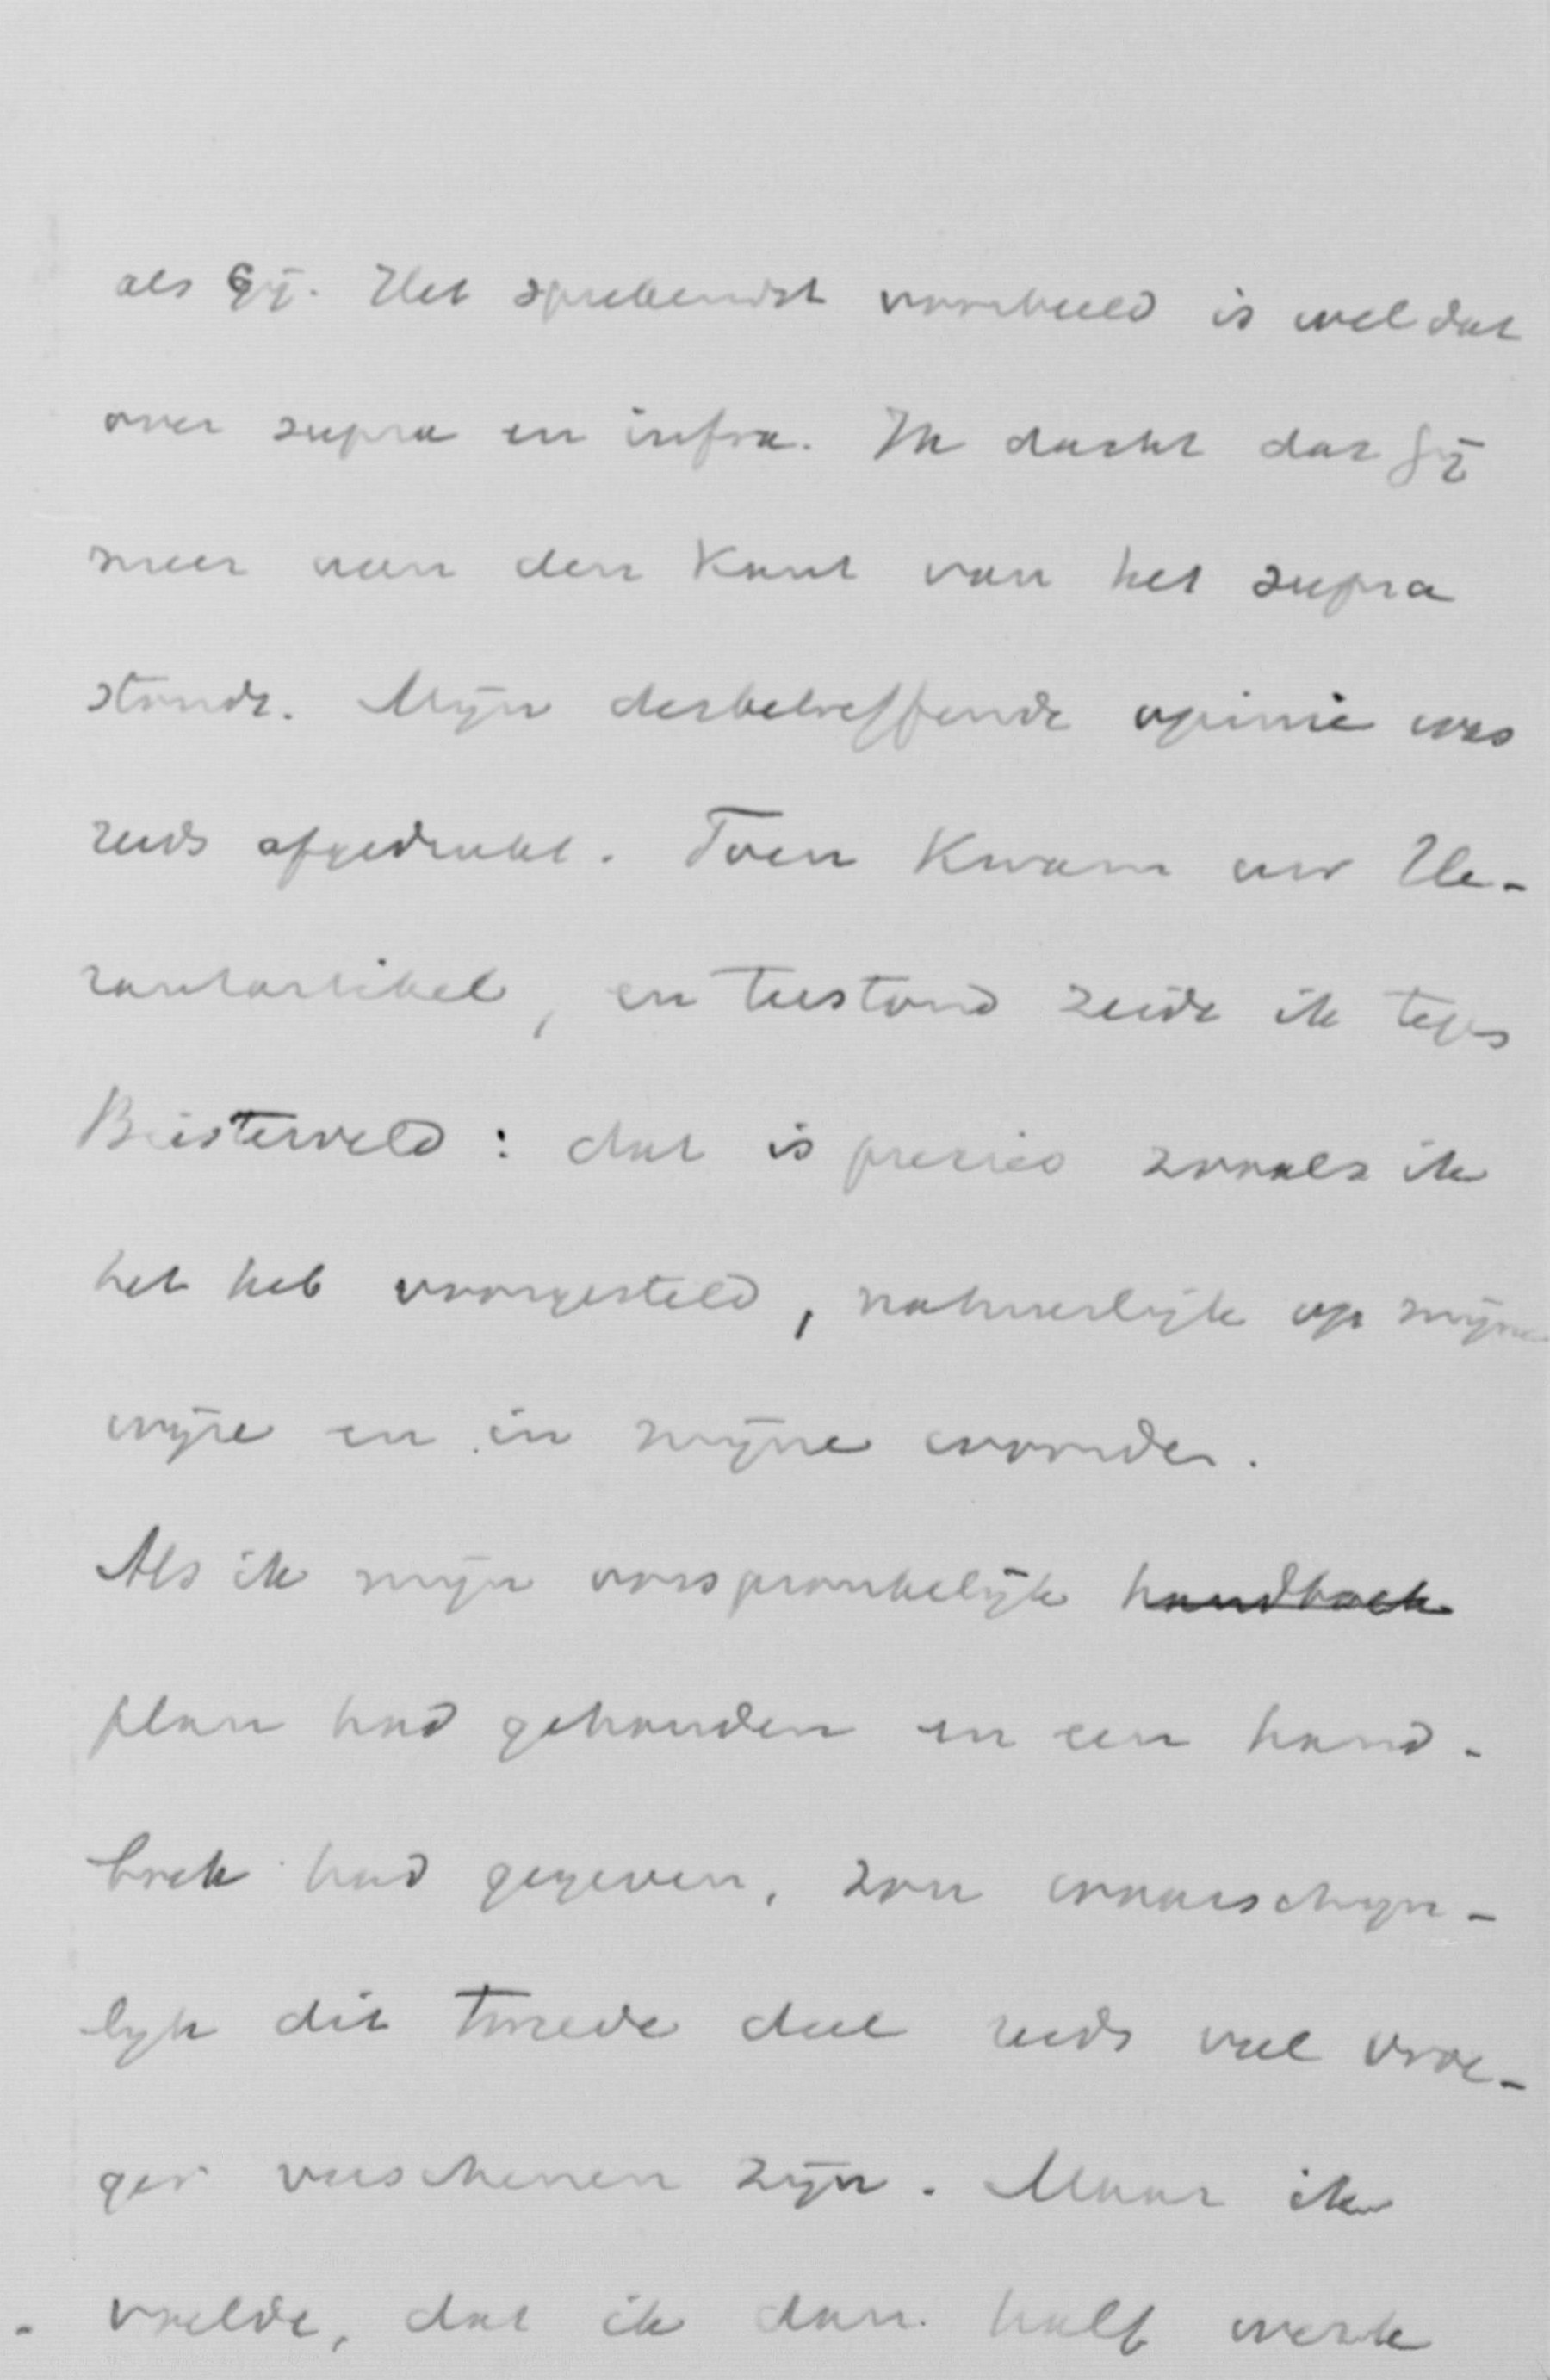 als Gij. Het sprekendst voorbeeld is wel dat
over supra en infra. Ik dacht dat Gij
meer aan den kant van het supra
stondt. Mijn desbetreffende opinie was
reeds afgedrukt. Toen kwam uw He-
rautartikel, en terstond zeide ik tegen
Biesterveld: dat is precies zooals ik
het heb voorgesteld, natuurlijk op mijne
wijze en in mijne woorden.
Als ik mijn oorspronkelijk handboek
plan had gehouden en een hand-
boek had gegeven, zou waarschijn-
lijk dit tweede deel reeds veel vroe-
ger verschenen zijn. Maar ik
voelde, dat ik dan half werk